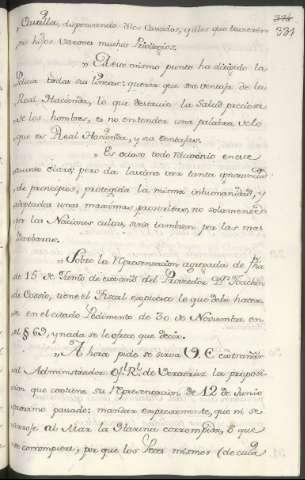 334
331
Currilla, dispensando à los Casados, q.e les que tuvieren
seis hijos Varones muchos Privilegios.
" A este mismo punto ha dirigido la
Policia todas sus lineas: querer que sea ventaja de la
Real Hacienda, lo que destruie la Salud preciosa
de los hombres, es no entender una palabra de lo
que es Real Hacienda, y sus ventajas.
" Es ocioso todo raciocinio en este
punto claro; pero da lastima ver tanta ignorancia
de principios, protegida la misma inhumanidad, y
adoptadas unas maximas proscriptas, no solamente
por las Naciones cultas, sino tambien por las mas
barbaras.
" Sobre la Representacion agregada de fha
de 15 de Junio de del Proveedor D.n Joachin
de Cossio, tiene el Fiscal expuesto lo que debe hacerse
en el citado Pedimento de 30 de Noviembre en
el § 69, y nada se le ofrece que decir.
" Ahora pide se sirva V. E. contextar
al Administrador g.l R.l de Veracruz la proposicion
que contiene su Representacion de 12 de Junio
proximo pasado: mandar expresamente, que ni se
arroje al Mar la Harina corrompida, ò que
se corrompiere; por que los Peces mismos (de cuia